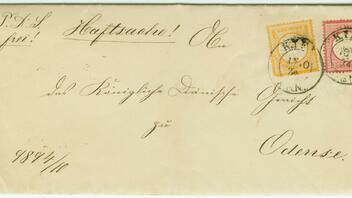 P. D. S.
frei!
Haftsache!
An
das Königliche Dänische Gericht
zu
Odense.
9894/10